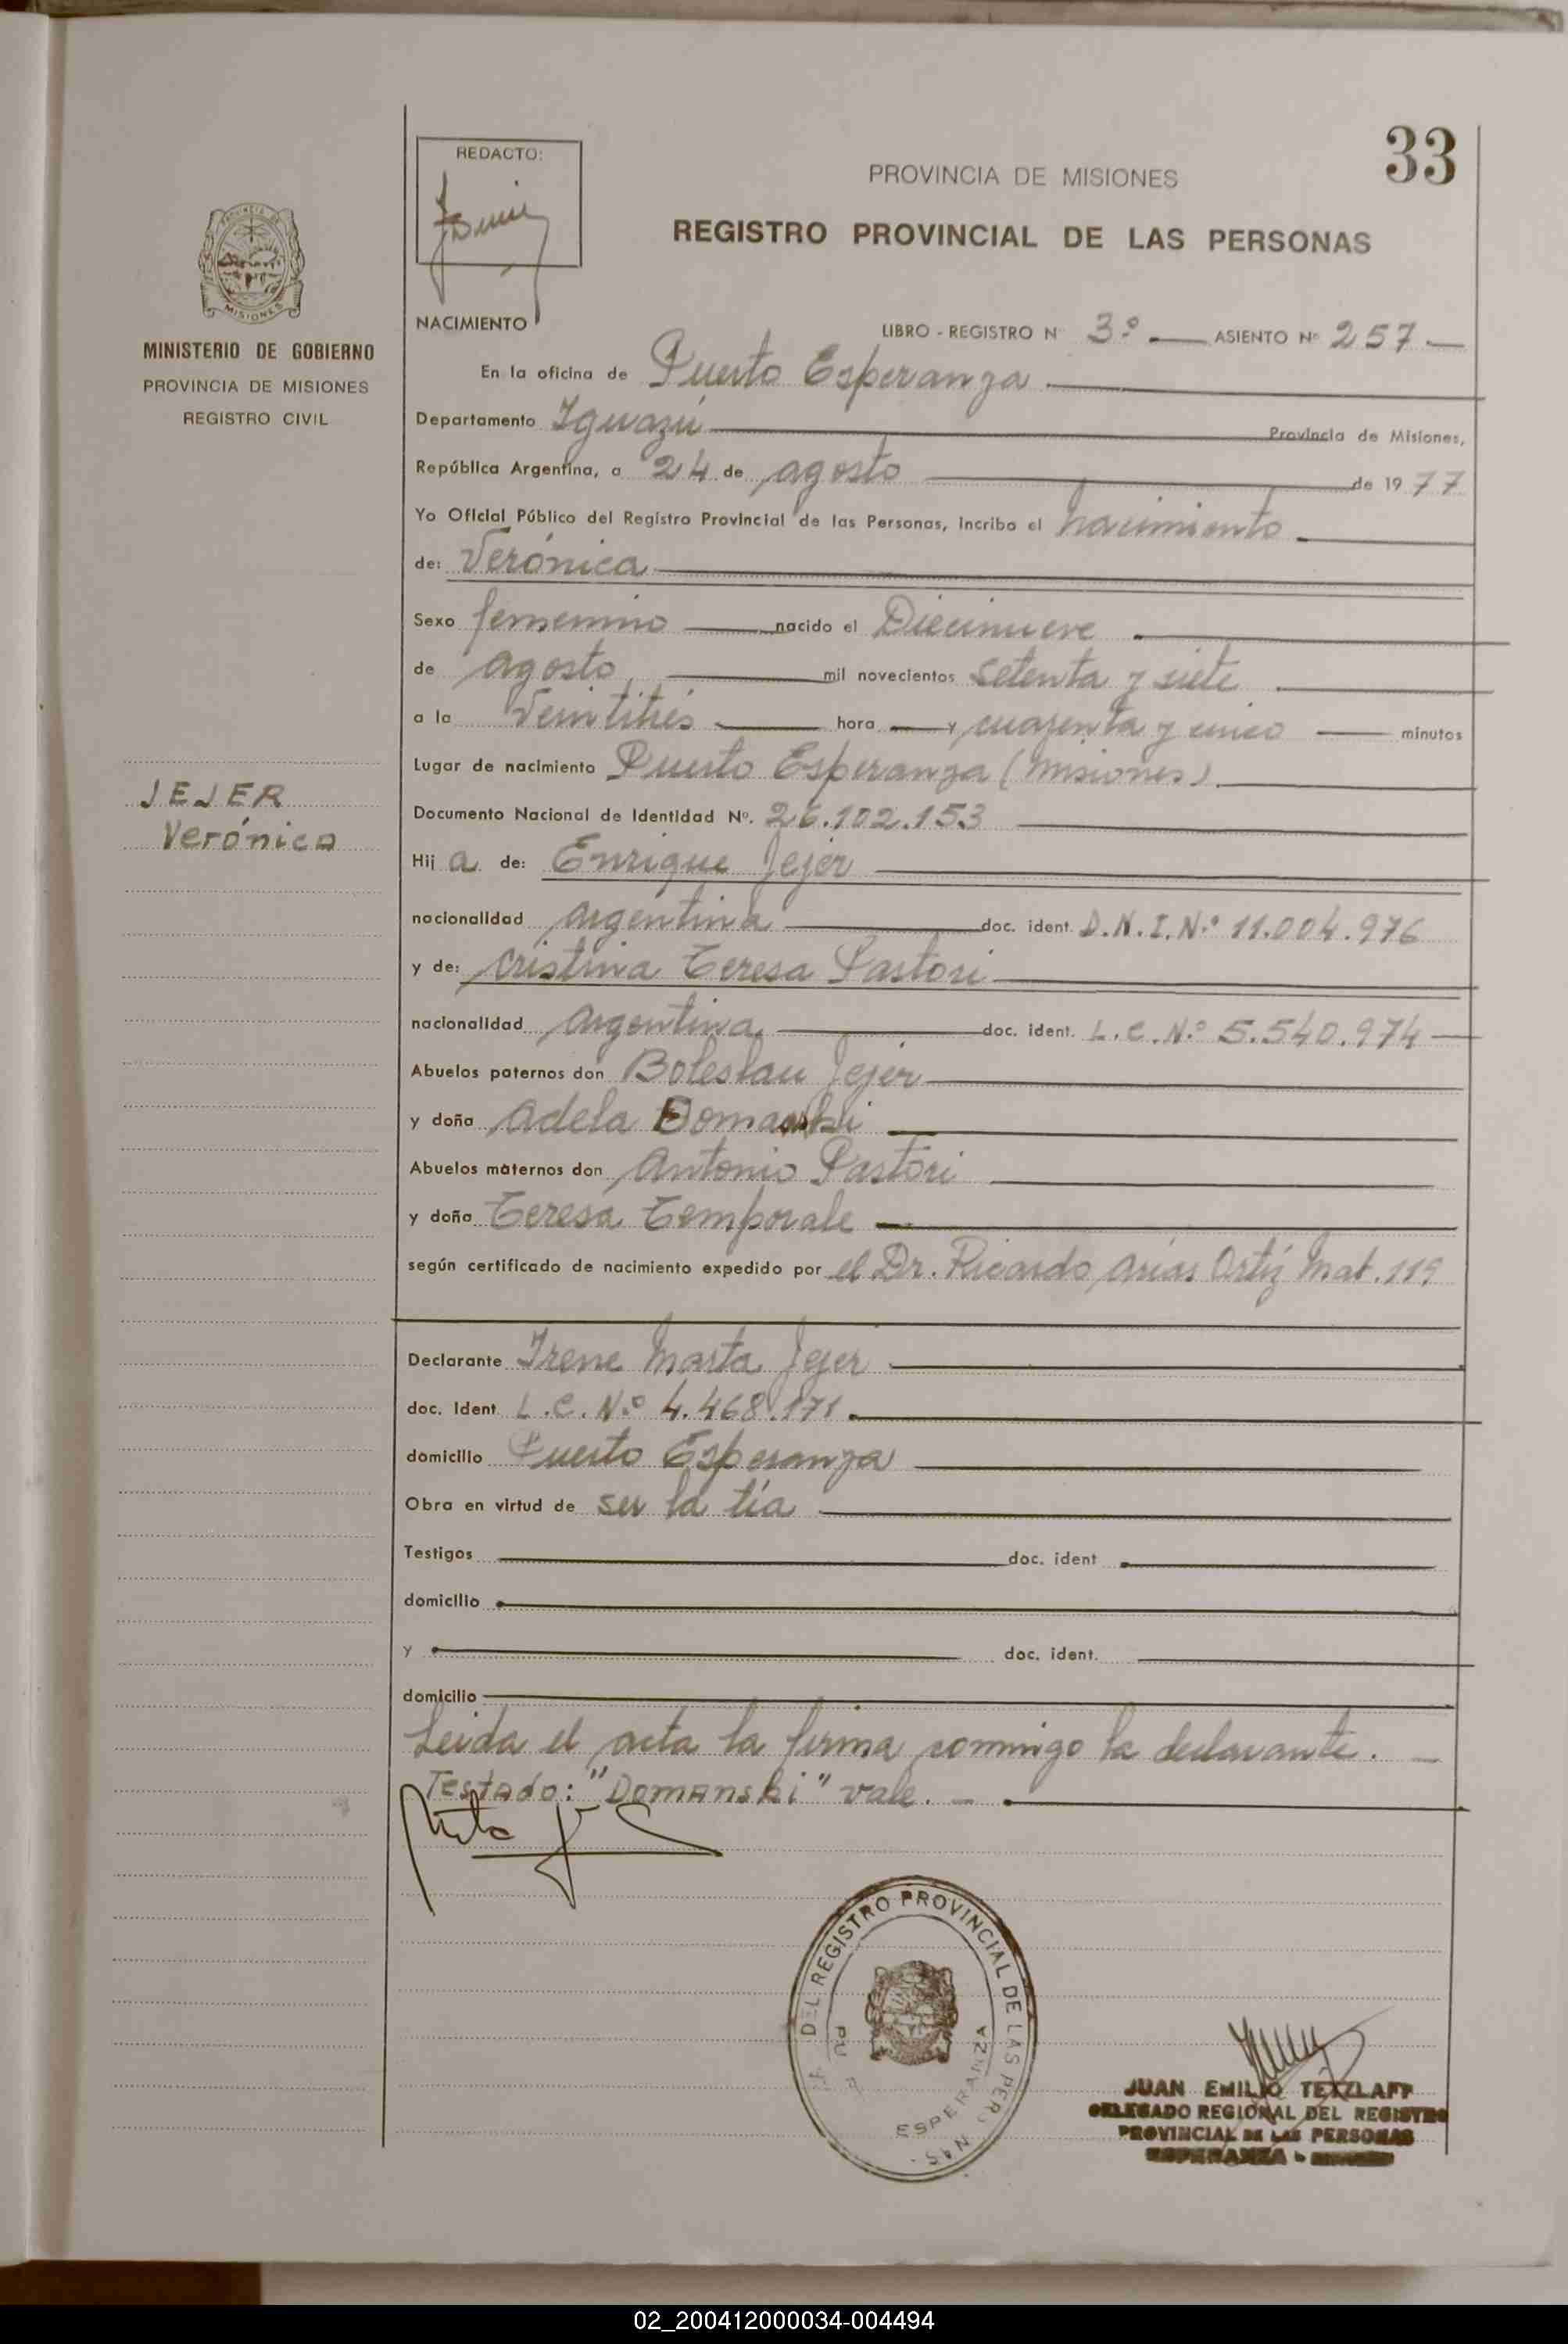 33
REDACTO:
PROVINCIA DE MISIONES
REGISTRO PROVINCIAL DE LAS PERSONAS
MISIONES
MINISTERIO DE GOBIERNO
PROVINCIA DE MISIONES
REGISTRO CIVIL
JEJER
Verónica
NACIMIENTO
LIBRO - REGISTRO N 3º ASIENTO Nº 257
En la oficina de Puerto Esperanza
Departamento Iguazú Provincia de Misiones,
República Argentina, a 24 de agosto de 1977
Yo Oficial Público del Registro Provincial de las Personas, inscribo el nacimiento
de: Verónica
Sexo femenino nacido el Diecinueve
de agosto mil novecientos setenta y siete
a la Veintitrés hora y cuarenta y cinco minutos
Lugar de nacimiento Puerto Esperanza (Misiones)
Documento Nacional de Identidad Nº. 26.102.153
Hij a de: Enrique Jejer
nacionalidad argentina doc. ident. D.N.I.N.º 11.004.976
y de: Cristina Teresa Pastori
nacionalidad argentina doc. ident. L.C.N.º 5.540.974
Abuelos paternos don Boleslau Jejer
y doña Adela Domanski
Abuelos maternos don Antonio Pastori
y doña Teresa Temporale
según certificado de nacimiento expedido por el Dr. Ricardo Arias Ortiz Mat. 119
Declarante Irene Marta Jejer
doc. ident. L.C.N.º 4.468.171.
domicilio Puerto Esperanza
Obra en virtud de ser la tía
Testigos doc. ident
domicilio
y doc. ident.
domicilio
Leida el acta la firma conmigo la declarante. —
Testado: "Domanski" vale. —
DEL REGISTRO PROVINCIAL DE LAS PERSONAS
ESPERANZA
JUAN EMILIO TETZLAFF
DELEGADO REGIONAL DEL REGISTRO
PROVINCIAL DE LAS PERSONAS
ESPERANZA - MISIONES
02_200412000034-004494